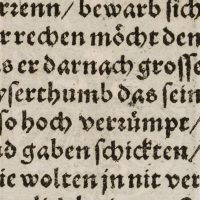 rzenn/ bewarb sich
rrechen möcht den
s er darnach grosse
yserthumb das sein
so hoch verzümpt/
d gaben schickten/
ie wolten jn nit ver